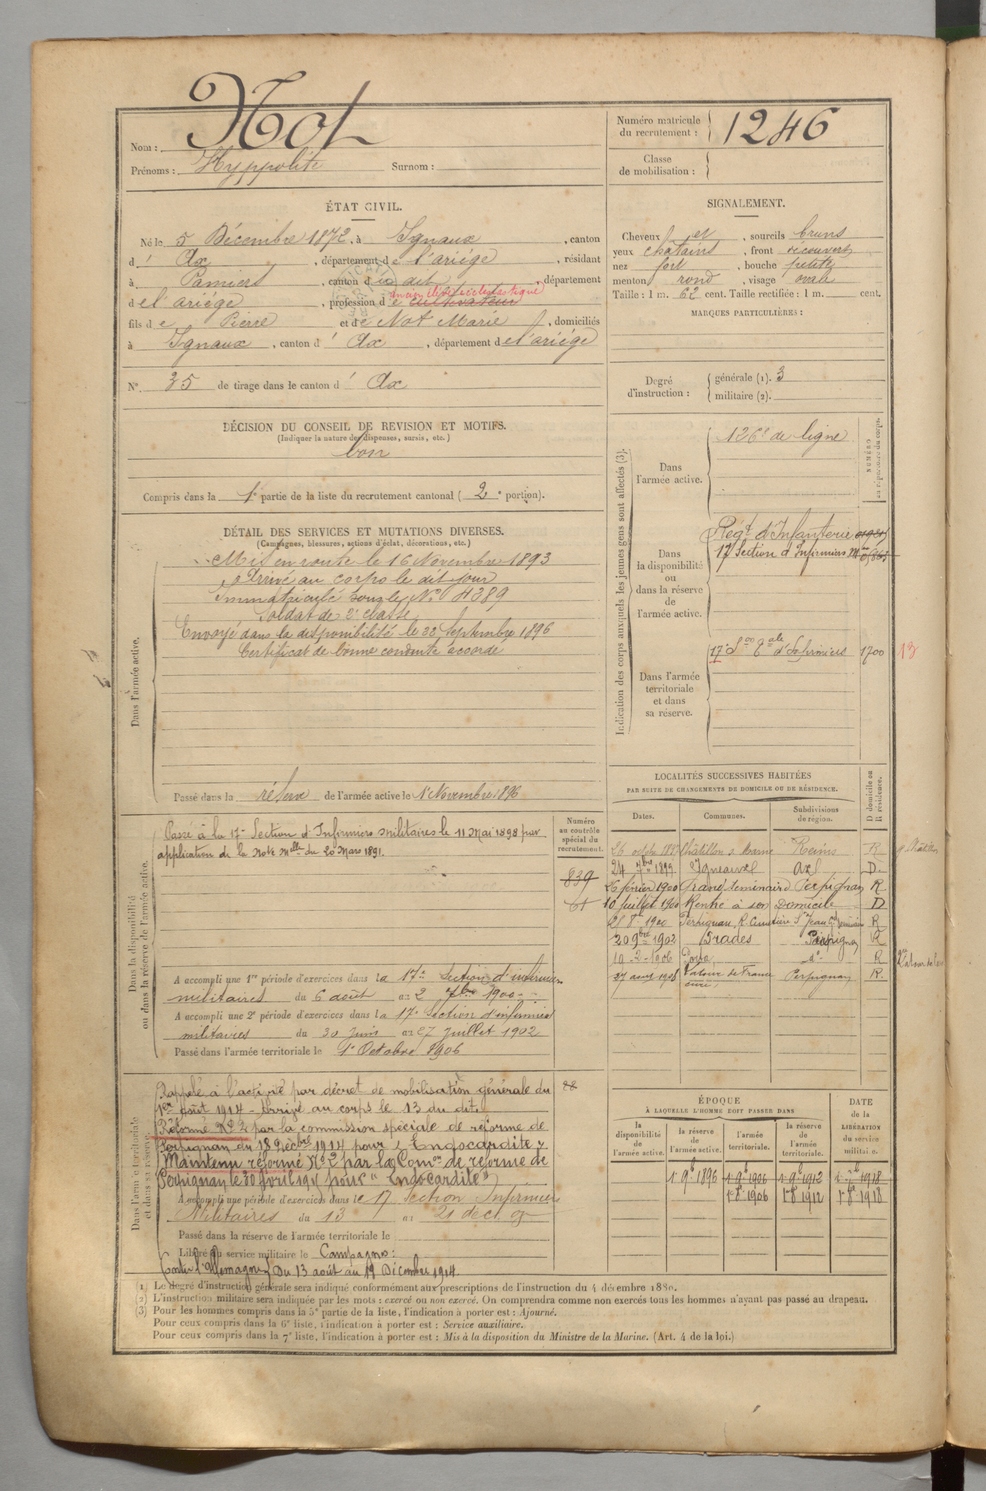 Nom : Not
Prénoms : Hyppolite Surnom :
Numéro matricule du recrutement : 1246
Classe de mobilisation :
ÉTAT CIVIL.
Né le 5 Décembre 1872, à Ignaux, canton
d' Ax, département de l'ariége, résidant
à Pamiers, canton du dit, département
de l'ariége, profession de cultivateur
ancien élève ecclésiastique
fils de Pierre et de Not Marie, domiciliés
à Ignaux, canton d' Ax, département de l'ariége
N° 35 de tirage dans le canton d' Ax
DÉCISION DU CONSEIL DE REVISION ET MOTIFS.
(Indiquer la nature des dispenses, sursis, etc.)
bon
Compris dans la 1e partie de la liste du recrutement cantonal (2e portion).
SIGNALEMENT.
Cheveux et, sourcils bruns
yeux chatains, front découvert
nez fort, bouche petite
menton rond, visage ovale
Taille : 1 m. 62 cent. Taille rectifiée : 1 m. cent.
MARQUES PARTICULIÈRES :
Degré d'instruction : générale (1). 3
militaire (2).
DÉTAIL DES SERVICES ET MUTATIONS DIVERSES.
(Campagnes, blessures, actions d'éclat, décorations, etc.)
Dans l'armée active.
Mis en route le 16 Novembre 1893
Arrivé au corps le dit jour
Immatriculé sous le N° 4389
Soldat de 2e classe
Envoyé dans la disponibilité le 22 Septembre 1896
Certificat de bonne conduite accordé
Passé dans la réserve de l'armée active le 1er Novembre 1896
Indication des corps auxquels les jeunes gens sont affectés (3).
NUMÉRO
Dans l'armée active.
126e de ligne
Dans la disponibilité ou dans la réserve de l'armée active.
Regt. d'Infanterie
17e Section d'Infirmiers
Dans l'armée territoriale et dans sa réserve.
17e Son tale d'Infirmiers 1700 13
Dans la disponibilité ou dans la réserve de l'armée active.
Passé à la 17e Section d'Infirmiers militaires le 11 Mai 1898 par
application de la Note Mlle du 20 Mars 1891.
Numéro au contrôle spécial du recrutement.
839
61
A accompli une 1re période d'exercices dans la 17e Section d'infirmiers
militaires du 6 août au 2 7bre 1900
A accompli une 2e période d'exercices dans la 17e Section d'infirmiers
militaires du 30 Juin au 27 Juillet 1902
Passé dans l'armée territoriale le 1er Octobre 1906
LOCALITÉS SUCCESSIVES HABITÉES
PAR SUITE DE CHANGEMENTS DE DOMICILE OU DE RÉSIDENCE.
Dates. Communes. Subdivisions de région. D domicile ou R résidence.
Châtillon s Marne Reims R
24 7bre 1899 D.
6 février 1900 Grand Séminaire Perpignan R
10 juillet 1900 Rentré à son Domicile D
1900 Perpignan, R. R
30 9bre 1902 Prades Perpignan R
10-2-1906 Porta do R
27 août 1908 Latour de France Perpignan R.
Dans l'armée territoriale et dans sa réserve.
Rappelé à l'activité par décret de mobilisation générale du
1er Août 1914 - Arrivé au corps le 13 du dit.
Réformé N° 2 par la commission spéciale de réforme de
Perpignan du 18 Décbre 1914 pour "Endocardite".
Maintenu réformé N° 2 par la Comon de réforme de
Perpignan le 30 Avril 1915 pour "Endocardite"
A accompli une période d'exercices dans le 17e Section Infirmiers
Militaires du 13 au 21 dec. 09
Passé dans la réserve de l'armée territoriale le
Libéré du service militaire le Campagne :
Contre l'Allemagne Du 13 août au 19 Décembre 1914.
ÉPOQUE
À LAQUELLE L'HOMME DOIT PASSER DANS
DATE de la LIBÉRATION du service militaire.
la disponibilité de l'armée active. la réserve de l'armée active. l'armée territoriale. la réserve de l'armée territoriale.
1er 9b 1896 1er 9b 1906 1er 9b 1912 1er 9b 1918
1er 8b 1906 1er 8b 1912 1er 8b 1918
(1) Le degré d'instruction générale sera indiqué conformément aux prescriptions de l'instruction du 4 décembre 1889.
(2) L'instruction militaire sera indiquée par les mots : exercé ou non exercé. On comprendra comme non exercés tous les hommes n'ayant pas passé au drapeau.
(3) Pour les hommes compris dans la 5e partie de la liste, l'indication à porter est : Ajourné.
Pour ceux compris dans la 6e liste, l'indication à porter est : Service auxiliaire.
Pour ceux compris dans la 7e liste, l'indication à porter est : Mis à la disposition du Ministre de la Marine. (Art. 4 de la loi.)